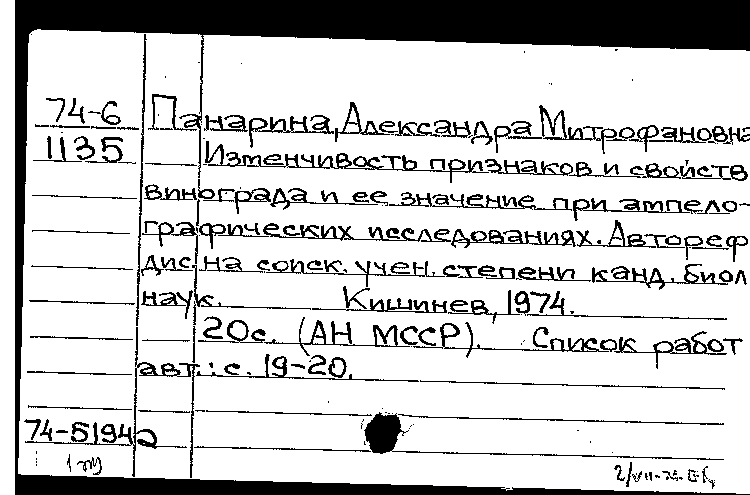 74-6 Панарина, Александра Митрофановна
1135 Изменчивость признаков и свойств
винограда и ее значение при ампело-
графических исследованиях. Автореф
дис. на соиск. учен. степени канд. биол
наук. Кишинев, 1974.
20с. (АН МССР). Список работ
авт.: с. 19-20.
74-51942